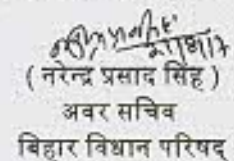 ( नरेन्द्र प्रसाद सिंह )
अवर सचिव
बिहार विधान परिषद्